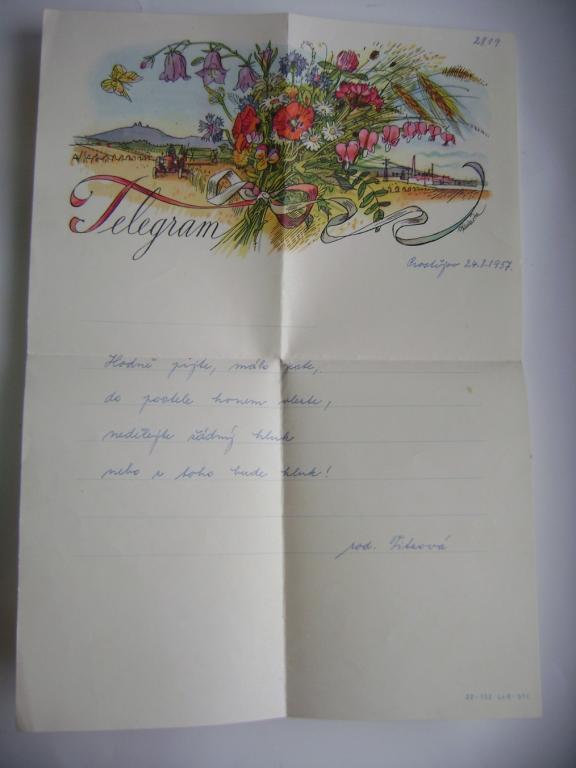 2819
Telegram
Prostějov 24.8.1957.
Hodně pijte, málo jezte,
do postele honem vlezte,
nedělejte žádný hluk
nebo z toho bude kluk!
rod. Vitková